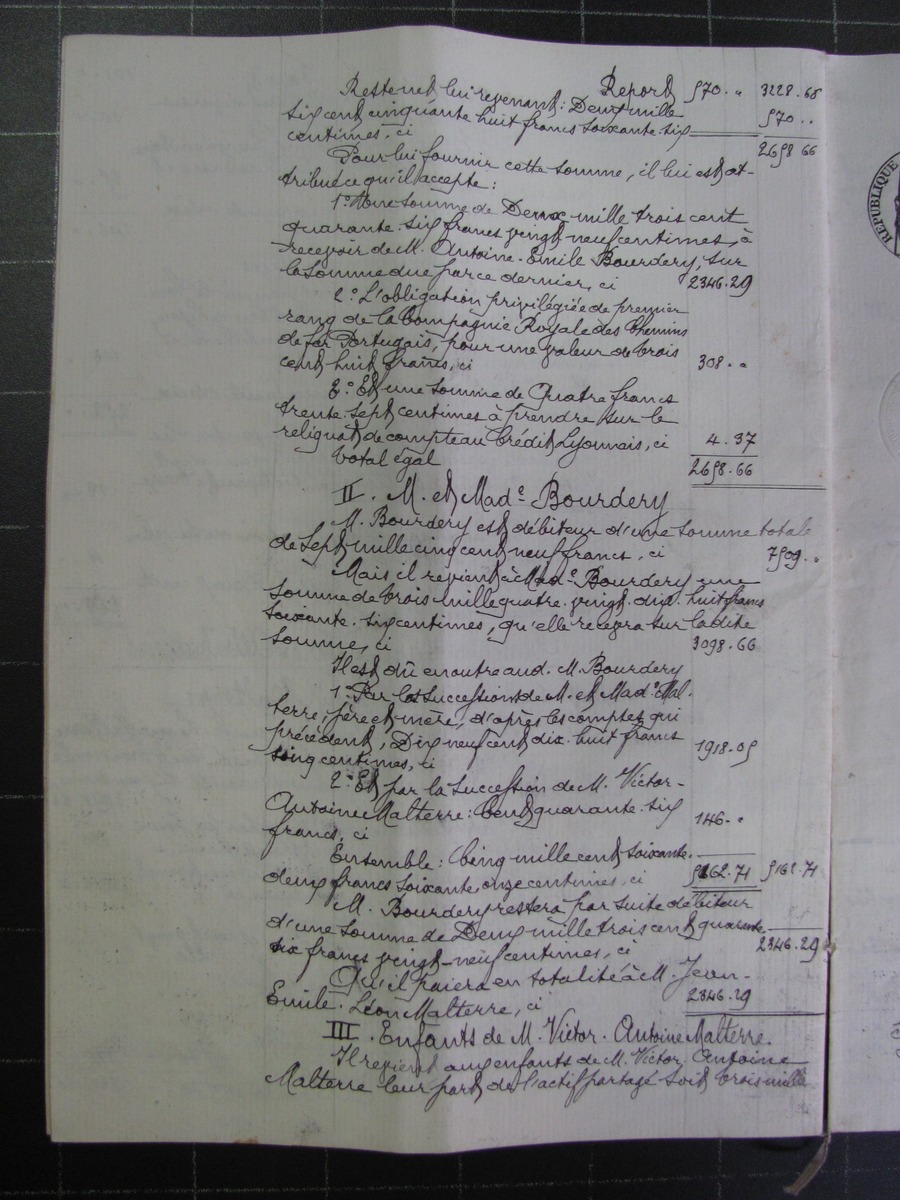 Report 570 . " 3228 . 66
Restent lui revenant : Deux mille 570 . .
six cent cinquante huit francs soixante. six
centimes, ci 2658 66
Pour lui fournir cette somme, il lui est at-
tribué ce qu'il accepte :
1.° Une somme de Deux mille trois cent
quarante. six francs vingt neuf centimes, à
recevoir de M. Antoine. Emile Bourdery, sur
la somme due par ce dernier, ci 2346.29
2.° L'obligation privilégiée de premier
rang de la Compagnie Royale des Chemins
de fer Portugais, pour une valeur de trois
cent huit francs, ci 308 . "
3.° Et une somme de Quatre francs
trente sept centimes à prendre sur le
reliquat de compte au Crédit Lyonnais, ci 4.37
Total égal 2658.66
II. M. et Mad.e Bourdery
M. Bourdery est débiteur d'une somme totale
de Sept mille cinq cent neuf francs, ci 7509 . "
Mais il revient à Mad.e Bourdery une
somme de trois mille quatre. vingt. dix. huit francs
soixante. six centimes, qu'elle recevra sur la dite
somme, ci 3098.66
Il est dû en outre aud. M. Bourdery
1.° Par les successions de M. et Mad.e Mal-
terre, père et mère, d'après les comptes qui
précèdent, Dix neuf cent dix. huit francs
cinq centimes, ci 1918.05
2.° Et par la succession de M. Victor-
Antoine Malterre : Cent quarante. six
francs, ci 146 . "
Ensemble : Cinq mille cent soixante.
deux francs soixante onze centimes, ci 5162.71 5162.71
M. Bourdery restera par suite débiteur
d'une somme de Deux mille trois cent quarante
six francs vingt-neuf centimes, ci 2346.29
Qu'il paiera en totalité à M. Jean-
Emile. Léon Malterre, ci 2346.29
III. Enfants de M. Victor. Antoine Malterre.
Il revient aux enfants de M. Victor. Antoine
Malterre leur part de l'actif partagé soit trois mille
RÉPUBLIQUE